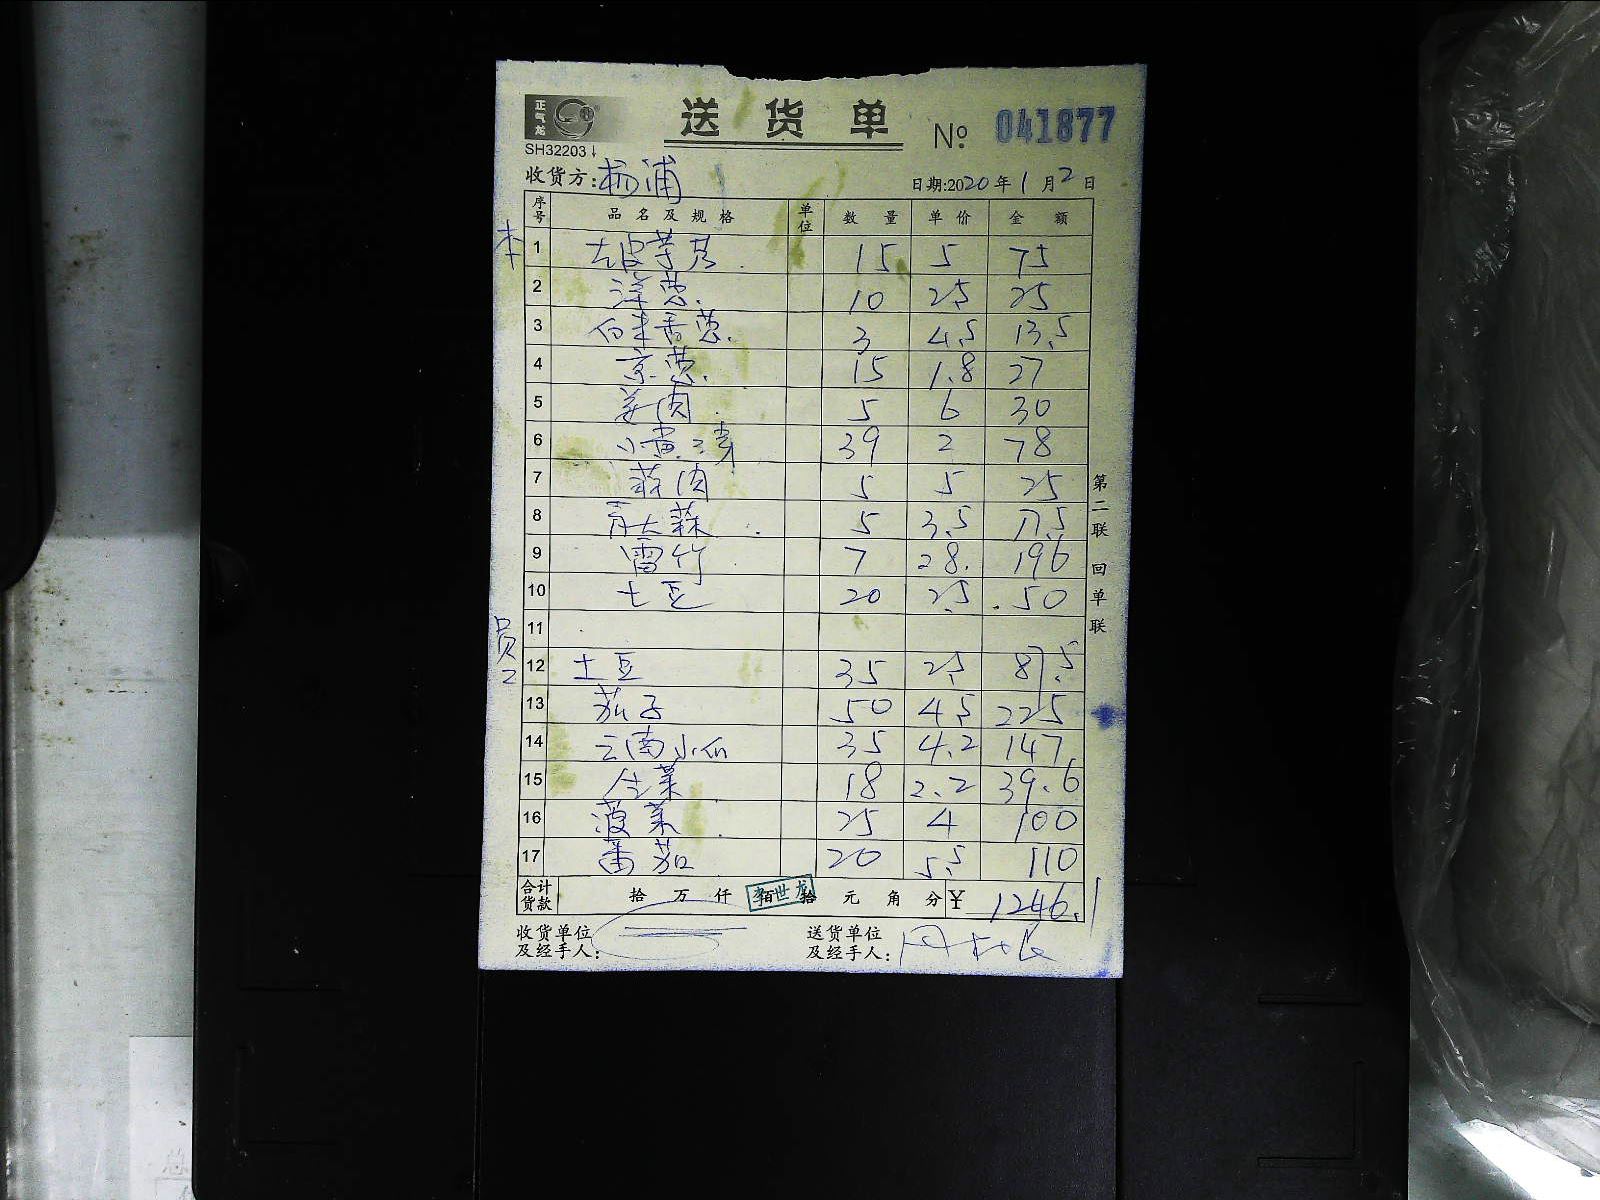 正气龙
送货单 № 041877
SH32203
收货方: 杨浦 日期:2020年1月2日
序号 品名及规格 单位 数量 单价 金额
本
1 去皮芋艿 15 5 75
2 洋葱 10 2.5 25
3 本香葱 3 4.5 13.5
4 京葱 15 1.8 27
5 姜肉 5 6 30
6 小黄 39 2 78
7 蒜肉 5 5 25
8 青大蒜 5 3.5 17.5
9 雷竹 7 28 196
10 土豆 20 2.5 50
11
员工
12 土豆 35 2.5 87.5
13 茄子 50 4.5 225
14 云南小瓜 35 4.2 147
15 生菜 18 2.2 39.6
16 菠菜 25 4 100
17 番茄 20 5.5 110
合计货款 拾万仟佰拾元角分 ¥ 1246.1
李世龙
收货单位及经手人:
送货单位及经手人:
第二联 回单联